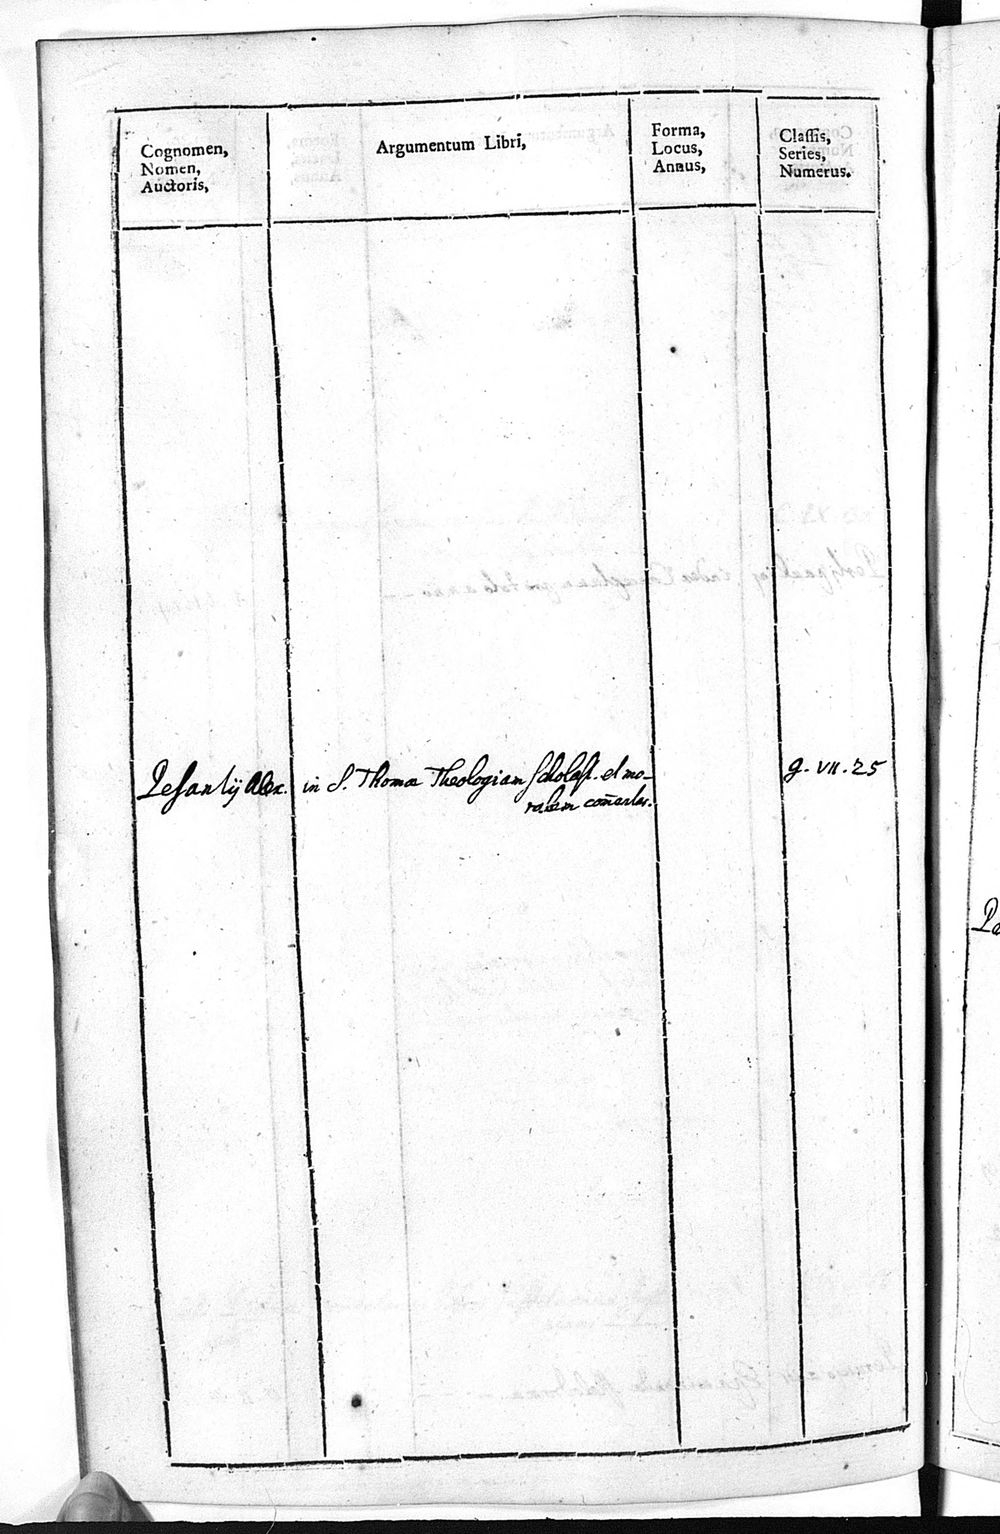 Cognomen,
Nomen,
Auctoris,
Argumentum Libri,
Forma,
Locus,
Annus,
Classis,
Series,
Numerus.
Pesantij Alex. in S. Thomæ Theologiam Scholast. et mo-
ralem com̄entar.
g. VII. 25